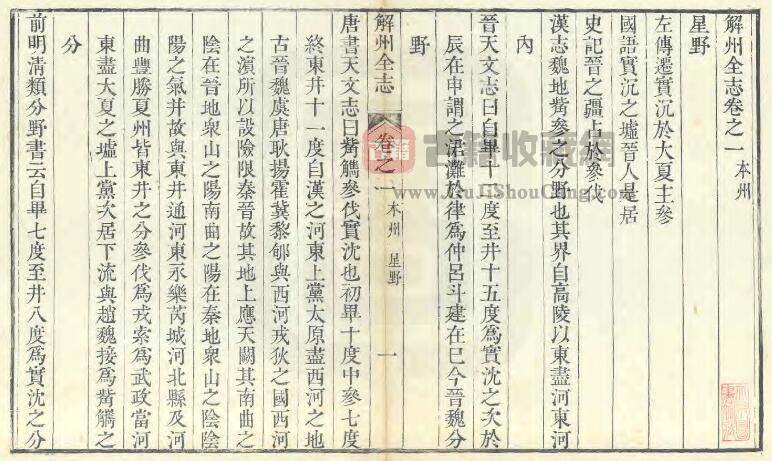 解州全志卷之一 本州
星野
左傳遷實沉於大夏主參
國語實沉之墟晉人是居
史記晉之疆占於參伐
漢志魏地觜參之分野也其界自高陵以東盡河東河
內
晉天文志曰自畢十二度至井十五度爲實沈之次於
辰在申謂之涒灘於律爲仲呂斗建在巳今晉魏分
野
解州全志 卷之一 本州 星野 一
唐書天文志曰觜觿參伐實沈也初畢十度中參七度
終東井十一度自漢之河東上黨太原盡西河之地
古晉魏虞唐耿揚霍冀黎郇與西河戎狄之國西河
之濱所以設險限秦晉故其地上應天闕其南曲之
陰在晉地衆山之陽南曲之陽在秦地衆山之陰陰
陽之氣并故與東井通河東永樂芮城河北縣及河
曲豐勝夏州皆東井之分參伐爲戎索爲武政當河
東盡大夏之墟上黨次居下流與趙魏接爲觜觿之
分
前明淸類分野書云自畢七度至井八度爲實沈之分
古籍收藏網
www.GuJiShouCang.com